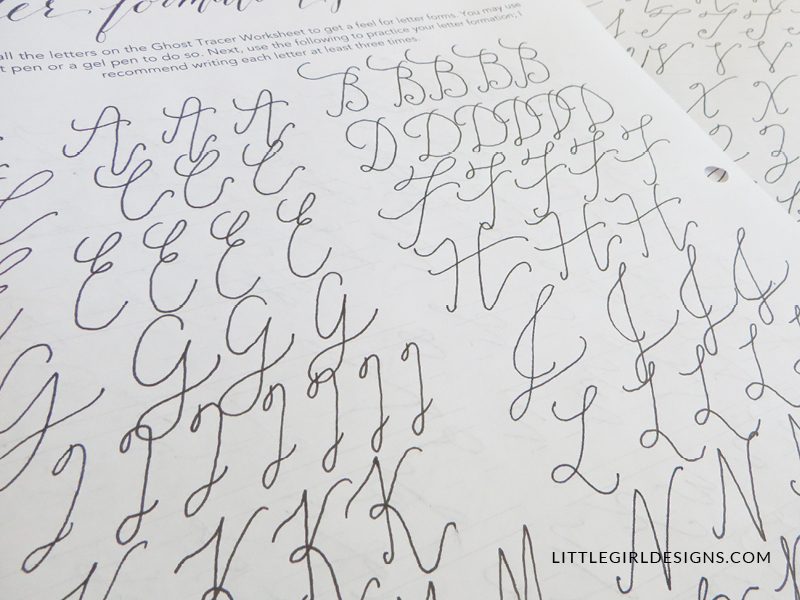 all the letters on the Ghost Tracer Worksheet to get a feel for letter forms. You may use
t pen or a gel pen to do so. Next, use the following to practice your letter formation; I
recommend writing each letter at least three times.
A A A
B B B B B
C C C
D D D D D D
E E E E
F F F F F
G G G G
H H H
I I I I
J J J J J J J
K K K
L L L L
M
N N N
V V V
X X
LITTLEGIRLDESIGNS.COM